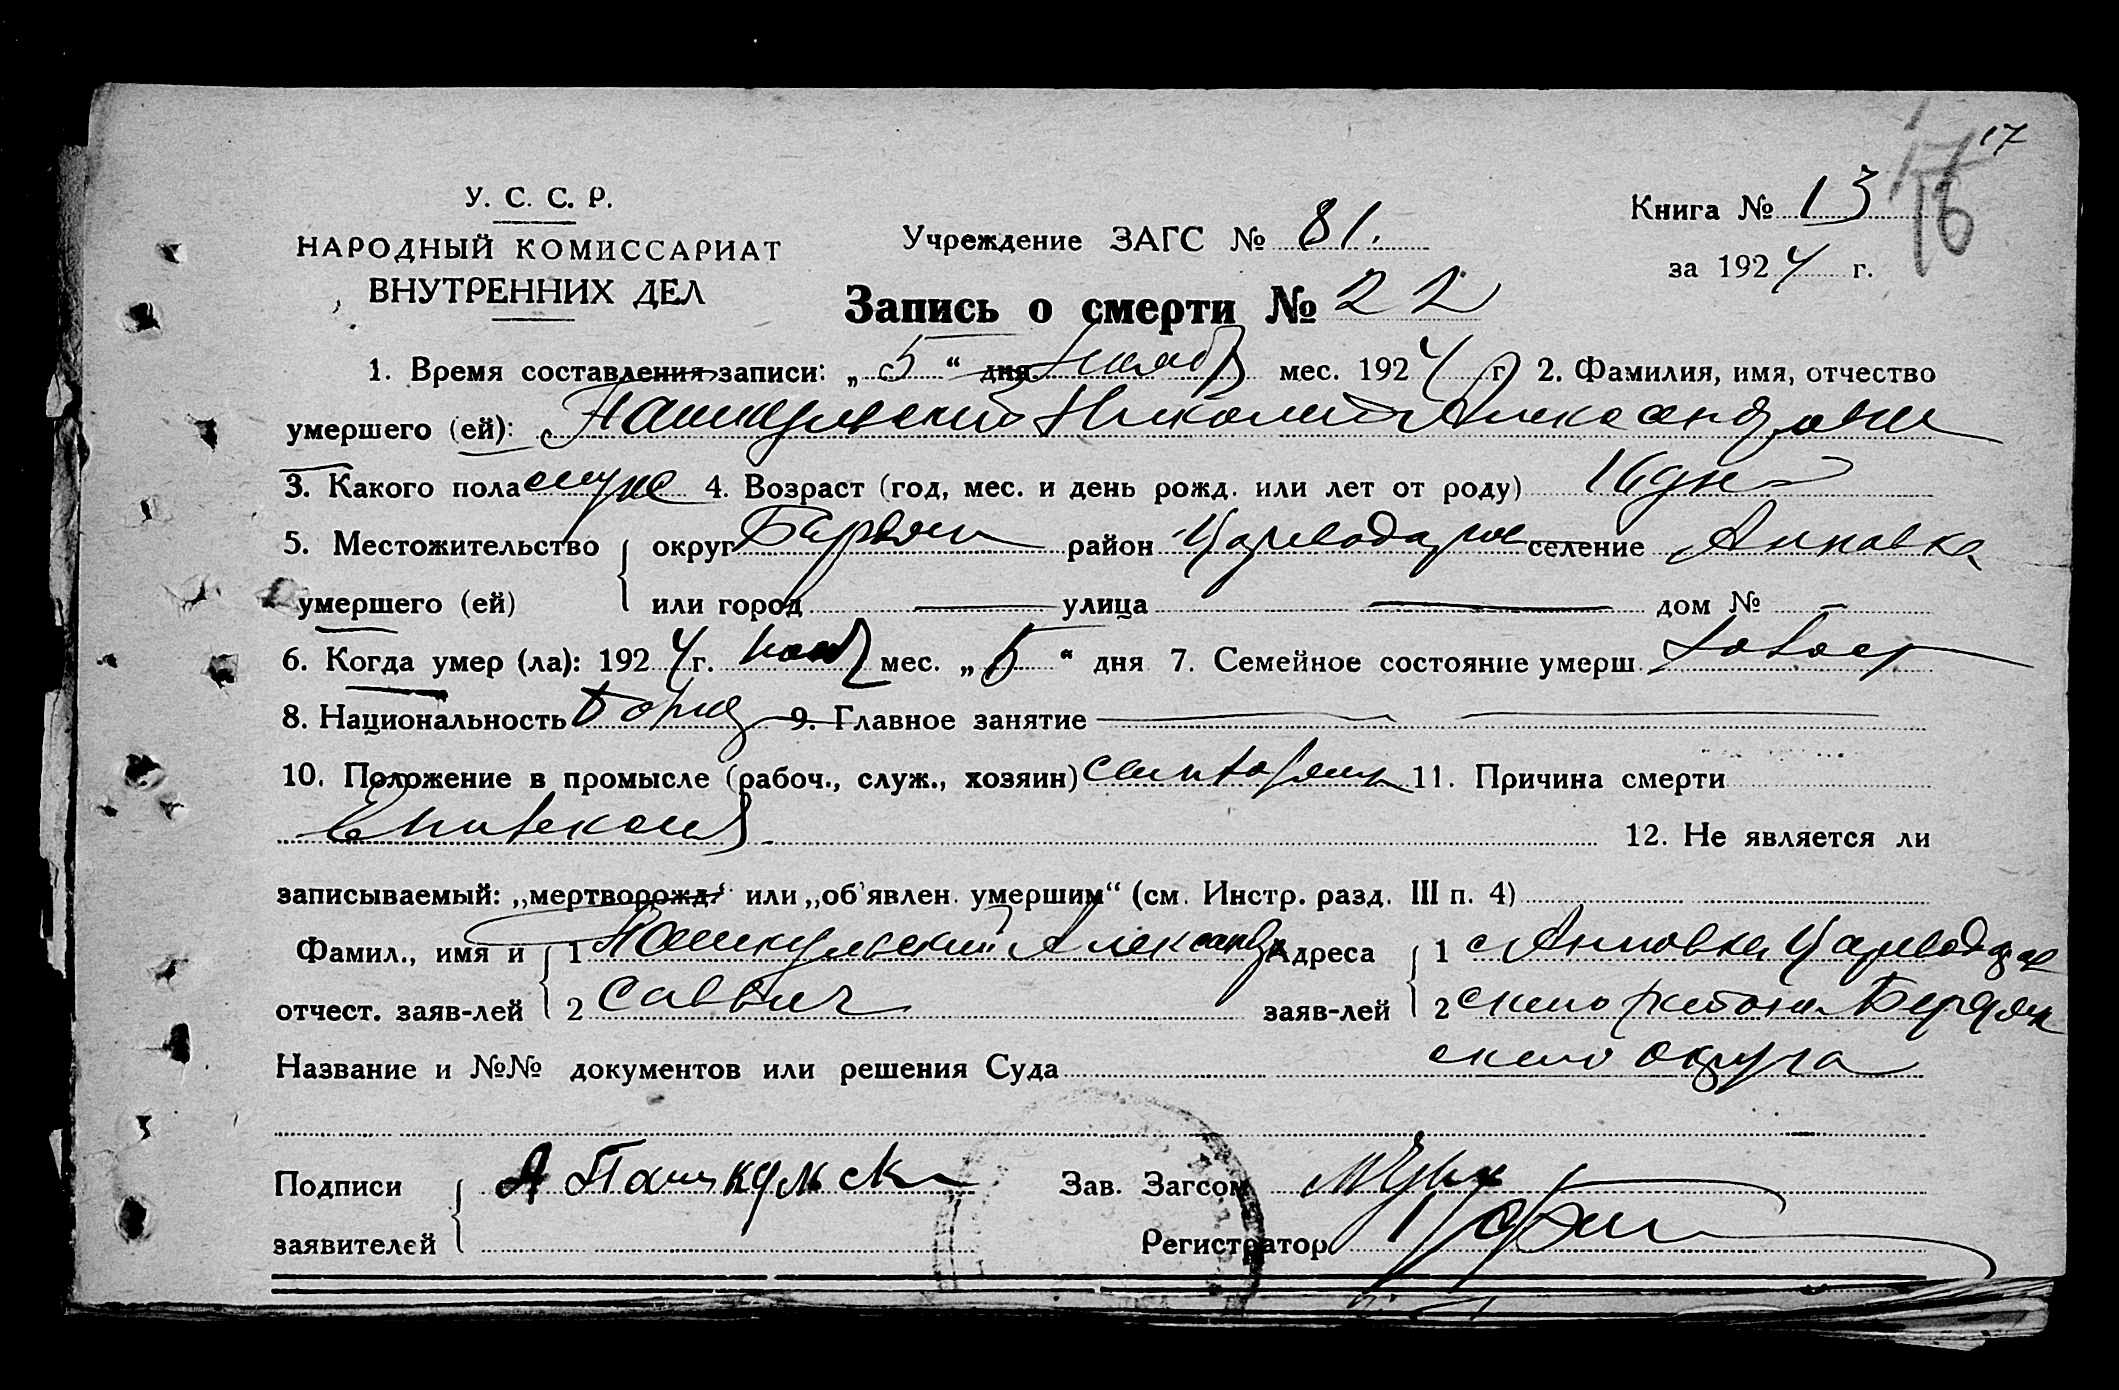 17
17
16
У. С. С. Р.
НАРОДНЫЙ КОМИССАРИАТ
ВНУТРЕННИХ ДЕЛ
Учреждение ЗАГС № 81.
Книга № 13
за 1924 г.
Запись о смерти № 22
1. Время составления записи: „5“ дня Ноябр мес. 1924 г. 2. Фамилия, имя, отчество
умершего (ей): Пашкульский Николай Александров
3. Какого пола муж 4. Возраст (год, мес. и день рожд. или лет от роду) дн
5. Местожительство округ Бердян район Цареводар селение Анновка
умершего (ей) или город — улица — дом № —
6. Когда умер (ла): 1924 г. Нояб мес. „5“ дня 7. Семейное состояние умерш. холост
8. Национальность 9. Главное занятие — —
10. Положение в промысле (рабоч., служ., хозяин) 11. Причина смерти
12. Не является ли
записываемый: „мертворожд.“ или „об'явлен. умершим“ (см. Инстр. разд. III п. 4)
Фамил., имя и 1 Пашкульский Александр Адреса 1 с Анновка Цареводар
отчест. заяв-лей 2 Саввич заяв-лей 2 ского района Бердян
Название и №№ документов или решения Суда ского округа
Подписи А Пашкульски Зав. Загсом
заявителей Регистратор